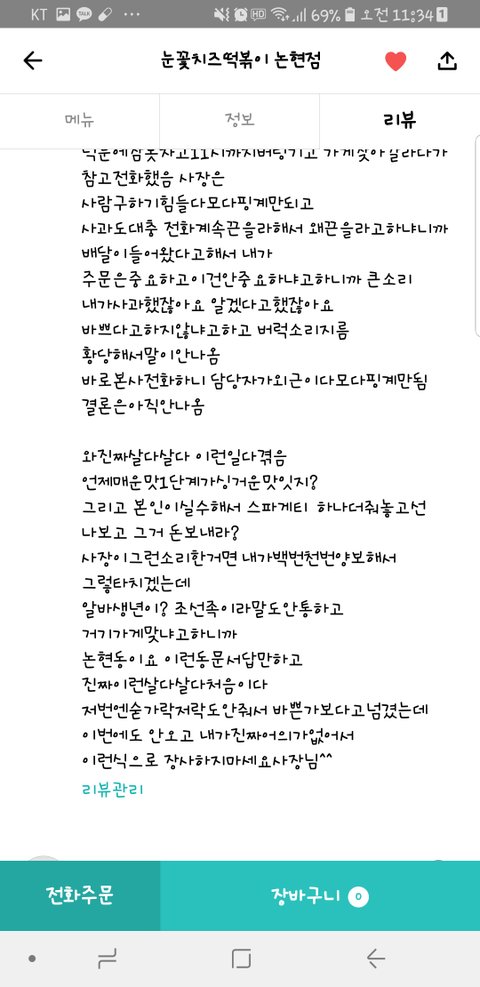 KT 69% 오전 11:34 1
눈꽃치즈떡볶이 논현점
메뉴 정보 리뷰
참고전화했음 사장은
사람구하기힘들다모다핑계만되고
사과도대충 전화계속끈을라해서 왜끈을라고하냐니까
배달이들어왔다고해서 내가
주문은중요하고이건안중요하냐고하니까 큰소리
내가사과했잖아요 알겠다고했잖아요
바쁘다고하지않냐고하고 버럭소리지름
황당해서말이안나옴
바로본사전화하니 담당자가외근이다모다핑계만됨
결론은아직안나옴
와진짜살다살다 이런일다겪음
언제매운맛1단계가싱거운맛잇지?
그리고 본인이실수해서 스파게티 하나더줘놓고선
나보고 그거 돈보내라?
사장이그런소리한거면 내가백번천번양보해서
그렇타치겠는데
알바생년이? 조선족이라말도안통하고
거기가게맞냐고하니까
논현동이요 이런동문서답만하고
진짜이런살다살다처음이다
저번엔숟가락저락도안줘서 바쁜가보다고넘겼는데
이번에도 안오고 내가진짜어의가없어서
이런식으로 장사하지마세요사장님^^
리뷰관리
전화주문 장바구니 0